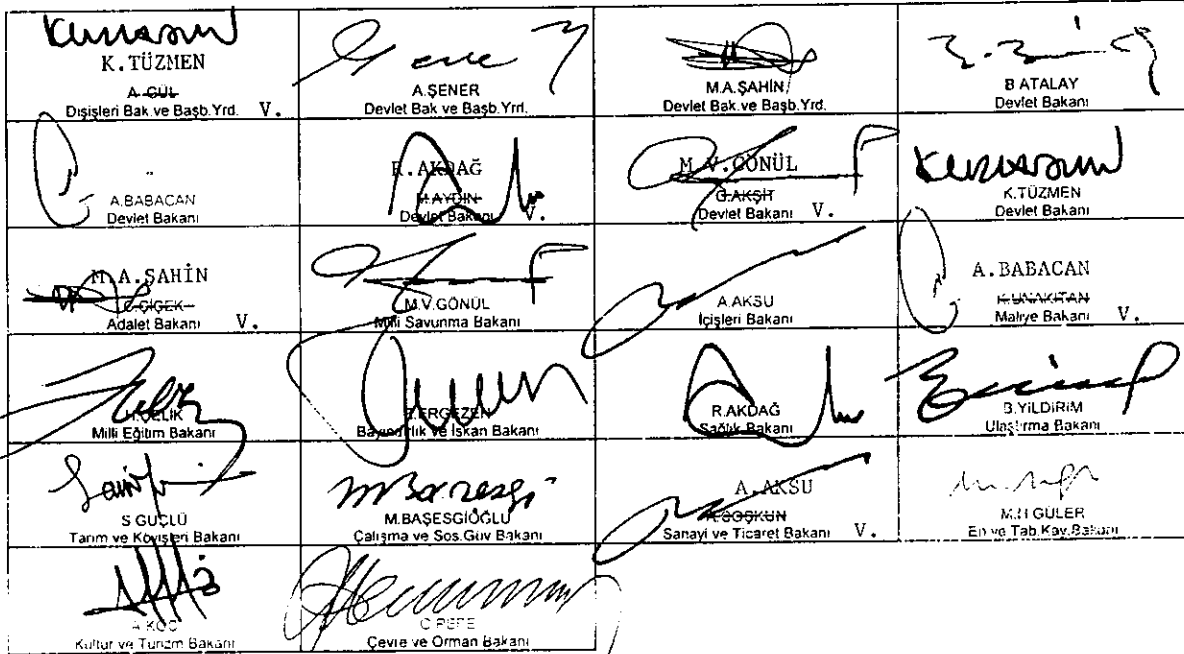 K.TÜZMEN
A.GÜL
Dışişleri Bak.ve Başb.Yrd. V.
A.ŞENER
Devlet Bak ve Başb.Yrd.
M.A.ŞAHİN
Devlet Bak.ve Başb.Yrd.
B ATALAY
Devlet Bakanı
A.BABACAN
Devlet Bakanı
R.AKDAĞ
M.AYDIN
Devlet Bakanı V.
M.V.GÖNÜL
G.AKŞİT
Devlet Bakanı V.
K.TÜZMEN
Devlet Bakanı
M.A.ŞAHİN
C.ÇİÇEK
Adalet Bakanı V.
M.V.GÖNÜL
Milli Savunma Bakanı
A.AKSU
İçişleri Bakanı
A.BABACAN
K.UNAKITAN
Maliye Bakanı V.
H.ÇELİK
Milli Eğitim Bakanı
Z.ERGEZEN
Bayındırlık ve İskan Bakanı
R.AKDAĞ
Sağlık Bakanı
B.YILDIRIM
Ulaştırma Bakanı
S GÜÇLÜ
Tarım ve Köyişleri Bakanı
M.BAŞESGİOĞLU
Çalışma ve Sos.Güv Bakanı
A.AKSU
A.COŞKUN
Sanayi ve Ticaret Bakanı V.
M.H GÜLER
En ve Tab.Kay.Bakanı
A KOÇ
Kültür ve Turizm Bakanı
O PEPE
Çevre ve Orman Bakanı